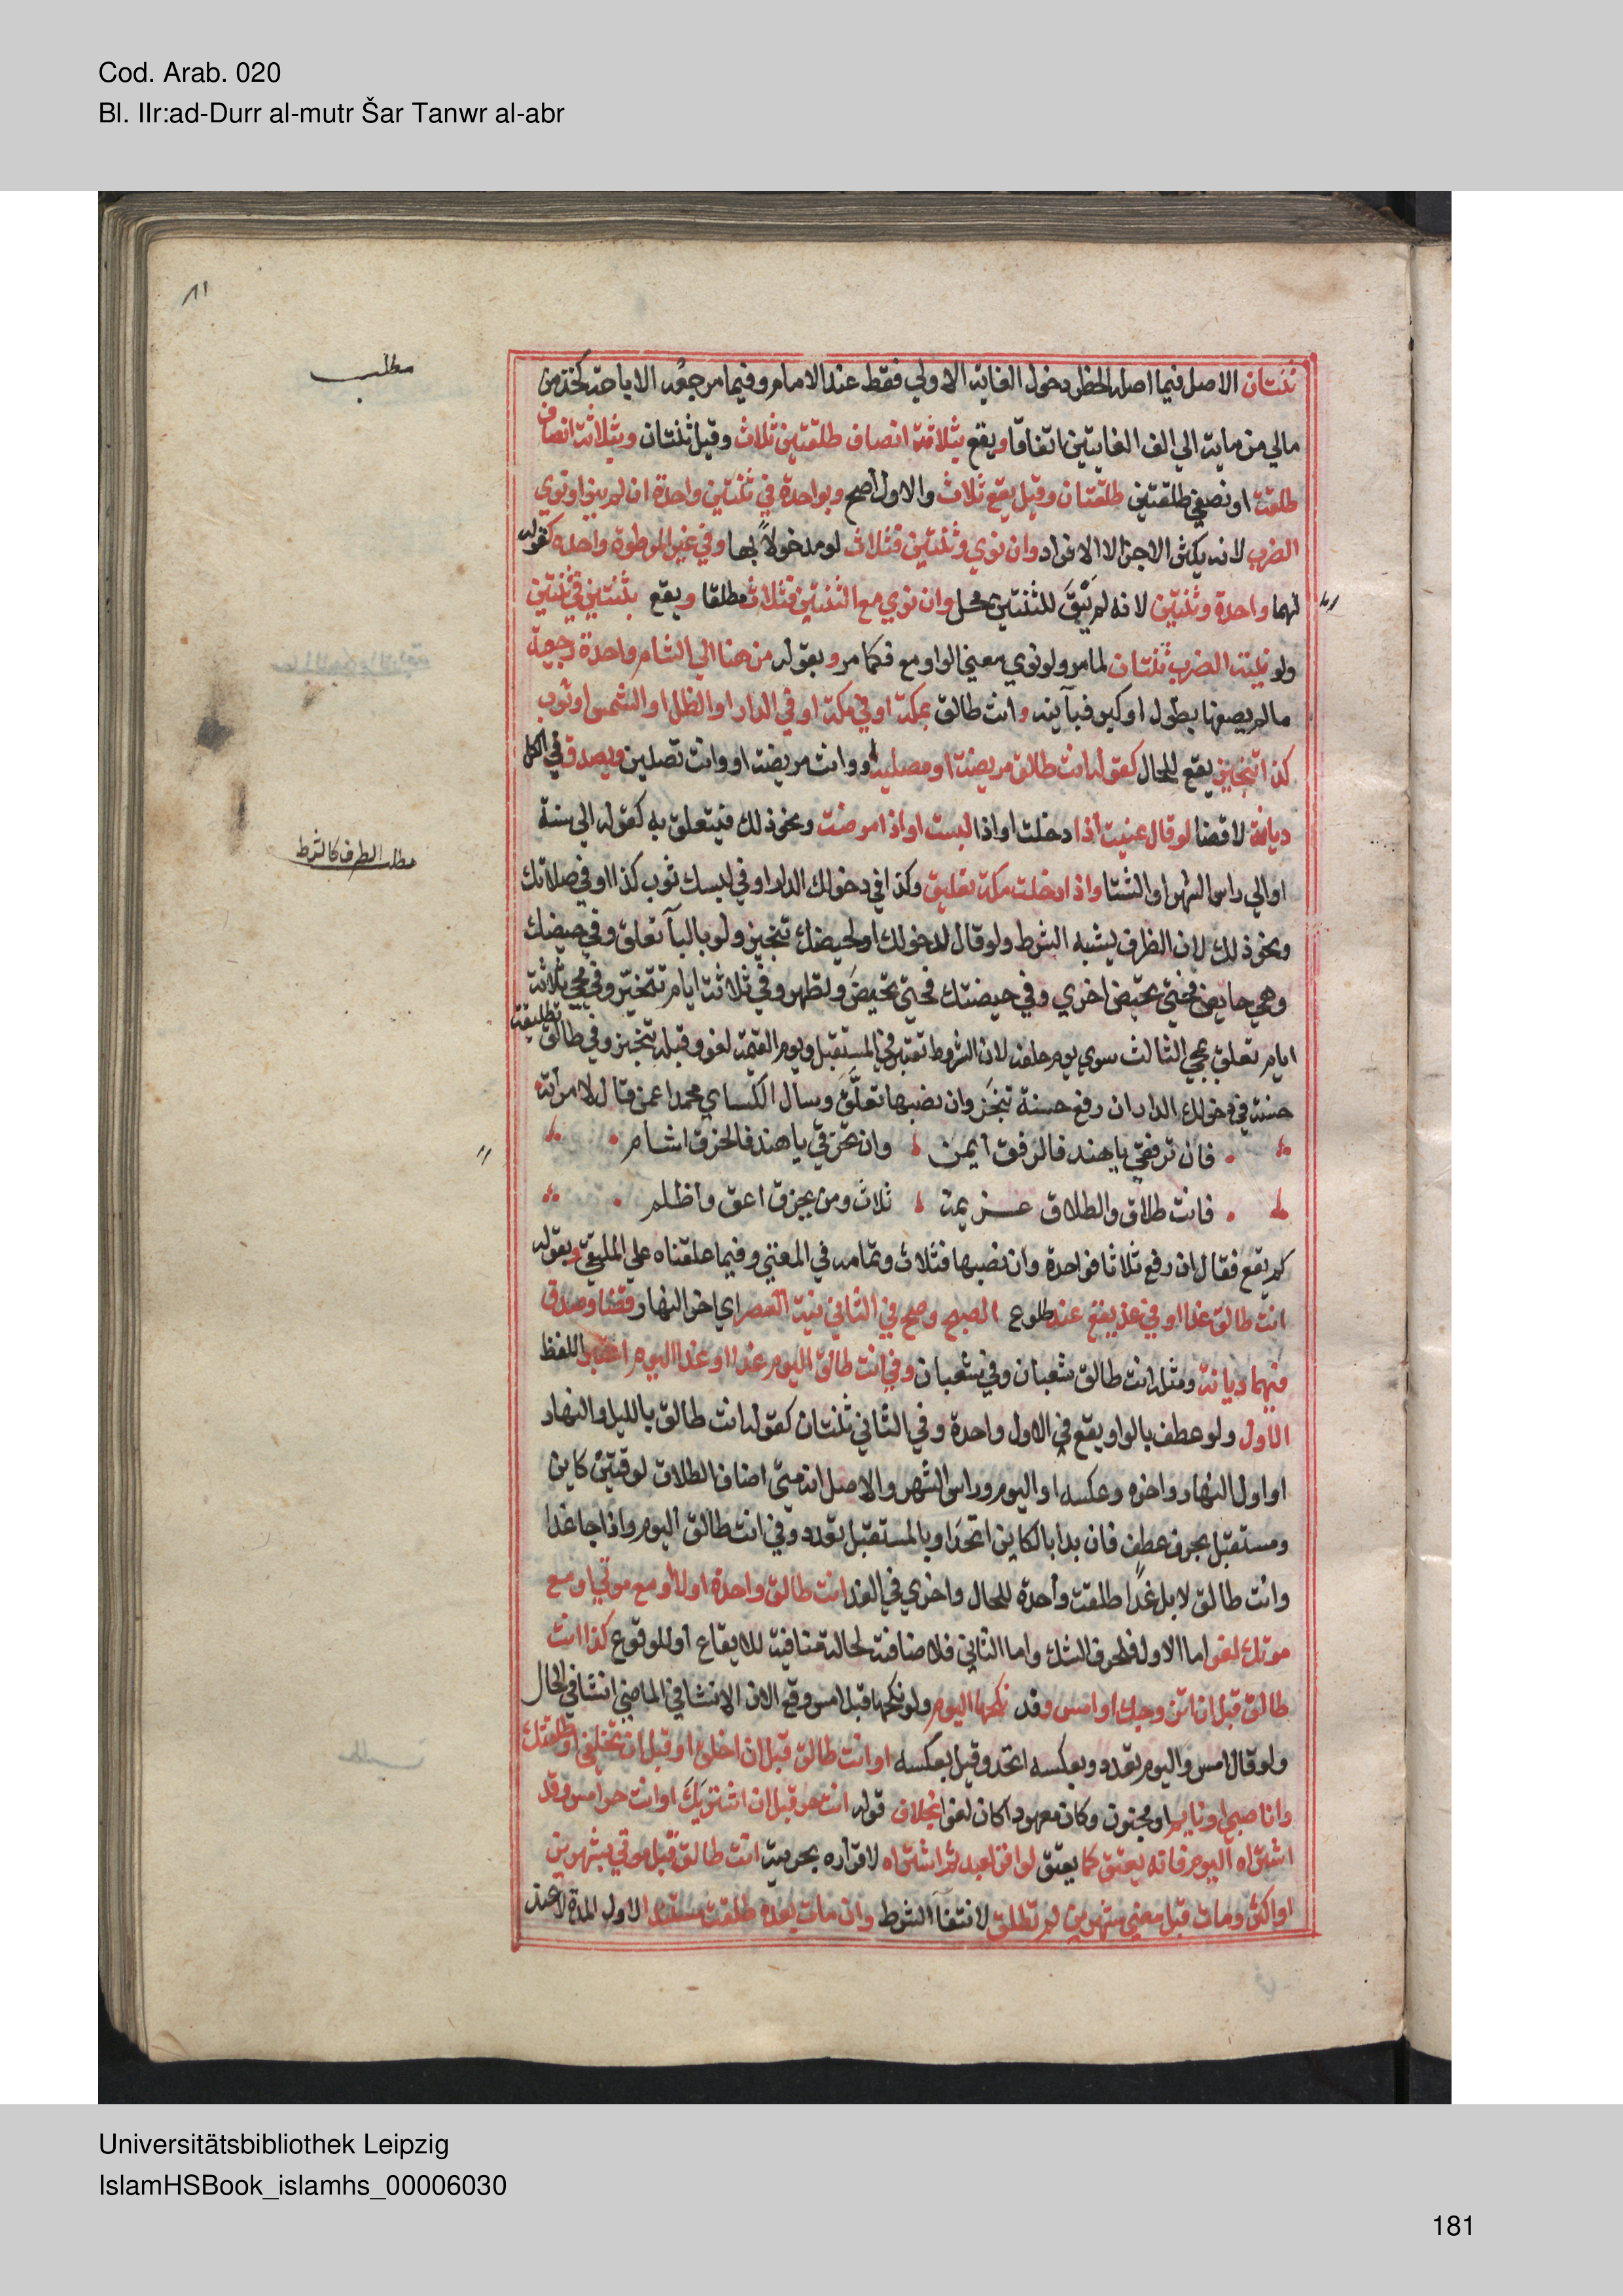 Cod. Arab. 020
Bl. IIr:ad-Durr al-mutr Šar Tanwr al-abr
٨١
مطلب
ثنتان الاصل فيما اصله الحظر دخول الغاية الاولي فقط عند الامام وفيما مرجعه الاباحة كخذ من
مالي من ماية الي الف الغايتين اتفاقا ويقع بثلاثة انصاف طلقتين ثلاث وقيل ثنتان وبثلاثة انصاف
طلقة او نصفي طلقتين طلقتان وقيل يقع ثلاث والاول اصح وبواحدة في ثنتين واحدة ان لم ينو او نوي
الضرب لانه يكثر الاجزا لا الافراد وان نوي وثنتين فثلاث لو مدخولاً بها وفي غير الموطوة واحدة كقوله
لهما واحدة وثنتين لانه لم يَبْقَ للثنتين محل وان نوي مع الثنتين فثلاث مطلقا ويقع بثنتين في ثنتين
ولو بنية الضرب ثنتان لما مر ولو نوي معني الواو مع فكما مر وبقوله من هنا الي الشام واحدة رجعية
مالم يصفها بطول او كبر فبآينة وانت طالق بمكة او في مكة او في الدار او الظل او الشمس او ثوب
كذا تنجيز يقع للحال كقوله انت طالق مريضة او مصلية او وانت مريضة او وانت تصلين ويصدق في الكل
ديانة لا قضا لو قال عنيت اذا دخلت او اذا لبست او اذا مرضت ونحو ذلك فيتعلق به كقوله الي سنة
مطلب الظرف كالشرط
او الي راس الشهر او الشتا واذا دخلت مكة تعليق وكذا في دخولك الدار او في لبسك ثوب كذا او في صلاتك
ونحو ذلك لان الظرف يشبه الشرط ولو قال لدخولك او لحيضك تنجيز ولو بالبآ تعلق وفي حيضك
وهي حايض فحتي تحيض اخري وفي حيضتك فحتي تحيضَ وتطهر وفي ثلاثة ايام تنجيز وفي مجي ثلاثة
ايام تعلق بمجي الثالث سوي يوم حلفه لان الشروط تعتبر في المستقبل ويوم القيمة لغو وقبله تنجيز وفي طالق تطليقة
حسنة في دخولك الدار ان رفع حسنة تنجَّز وان نصبها تعلَّقَ وسال الكساي محمدا عمن قال لامراته
فان ترفقي يا هند فالرفق ايمن وان تخرقي يا هند فالخرق اشام
فانت طلاق والطلاق عزيمة ثلاث ومن يخرق اعق واظلم
كم يقع فقال ان رفع ثلاثا فواحدة وان نصبها فثلاث وتمامه في المغني وفيما علقناه علي الملتقي وبقوله
انت طالق غدا او في غد يقع عند طلوع الصبح وصح في الثاني نية العصر اي اخر النهار قضا وصدق
فيهما ديانة ومثله انت طالق شعبان وفي شعبان وفي انت طالق اليوم غدا او غدا اليوم اعتبر اللفظ
الاول ولو عطف بالواو يقع في الاول واحدة وفي الثاني ثنتان كقوله انت طالق بالليل والنهار
او اول النهار واخره وعكسه او اليوم وراس الشهر والاصل انه متي اضاف الطلاق لوقتين كاين
ومستقبل بحرف عطف فان بدا بالكاين اتحدَ او بالمستقبل تعدد وفي انت طالق اليوم واذا جا غدا
وانت طالق لا بل غدًا طلقت واحدة للحال واخري في الغد انت طالق واحدة اولا او مع موتي او مع
موتك لغو اما الاول فلحرف الشك واما الثاني فلاضافته لحالة منافية للايقاع او للوقوع كذا انت
طالق قبل ان اتزوجك او امس وقد نكحها اليوم ولو نكحها قبل امس وقع الان لان الانشا في الماضي انشا في الحال
ولو قال امس واليوم تعدد وبعكسه اتحد وقيل بعكسه او انت طالق قبل ان اخلق او قبل ان تخلقي او طلقتك
وانا صبي او نايم او مجنون وكان معهودا كان لغوا بخلاف قوله انت حر قبل ان اشتريَكَ او انت حر امس وقد
اشتراه اليوم فانه يعتق كما يعتق لو اقر لعبد ثم اشتراه لاقراره بحريته انت طالق قبل موتي بشهرين
او اكثر ومات قبل مضي شهرين لم تطلق لانتفآ الشرط وان مات بعده طلقت مستندا لاول المدة لا عند
Universitätsbibliothek Leipzig
IslamHSBook_islamhs_00006030
181